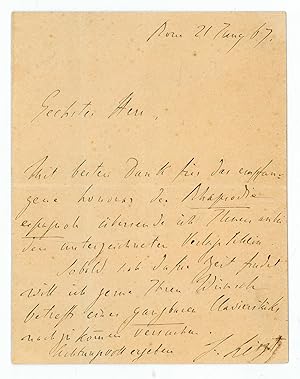 Rom 21 Juny 67.
Geehrter Herr,
Mit besten Dank für das empfan-
gene honorar der Rhapsodie
espagnole übersende ich Ihnen anbei
den unterzeichneten Verlagschein.
Sobald sich dafür Zeit findet
will ich gerne Ihren Wunsch
betreff eines gangbaren Clavierstücks
nachzukommen versuchen.
Achtungsvoll ergeben
F. Liszt